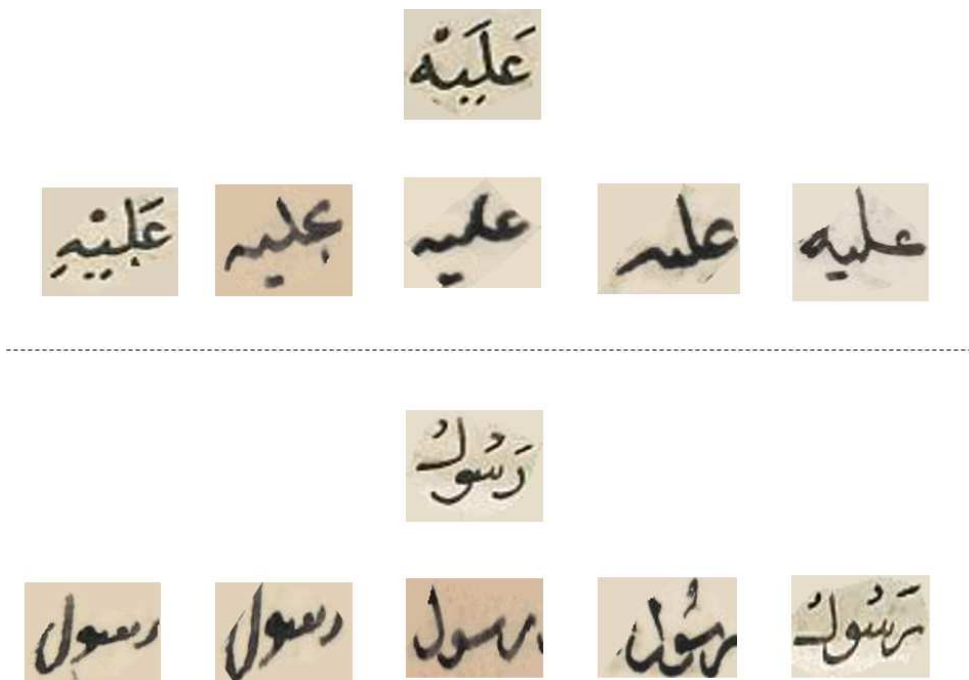 عَلَيْه
عليه عليه عليه عليه عَلَيْهِ
رَسُولُ
رَسُولُ رسُول رسول رسول رسول